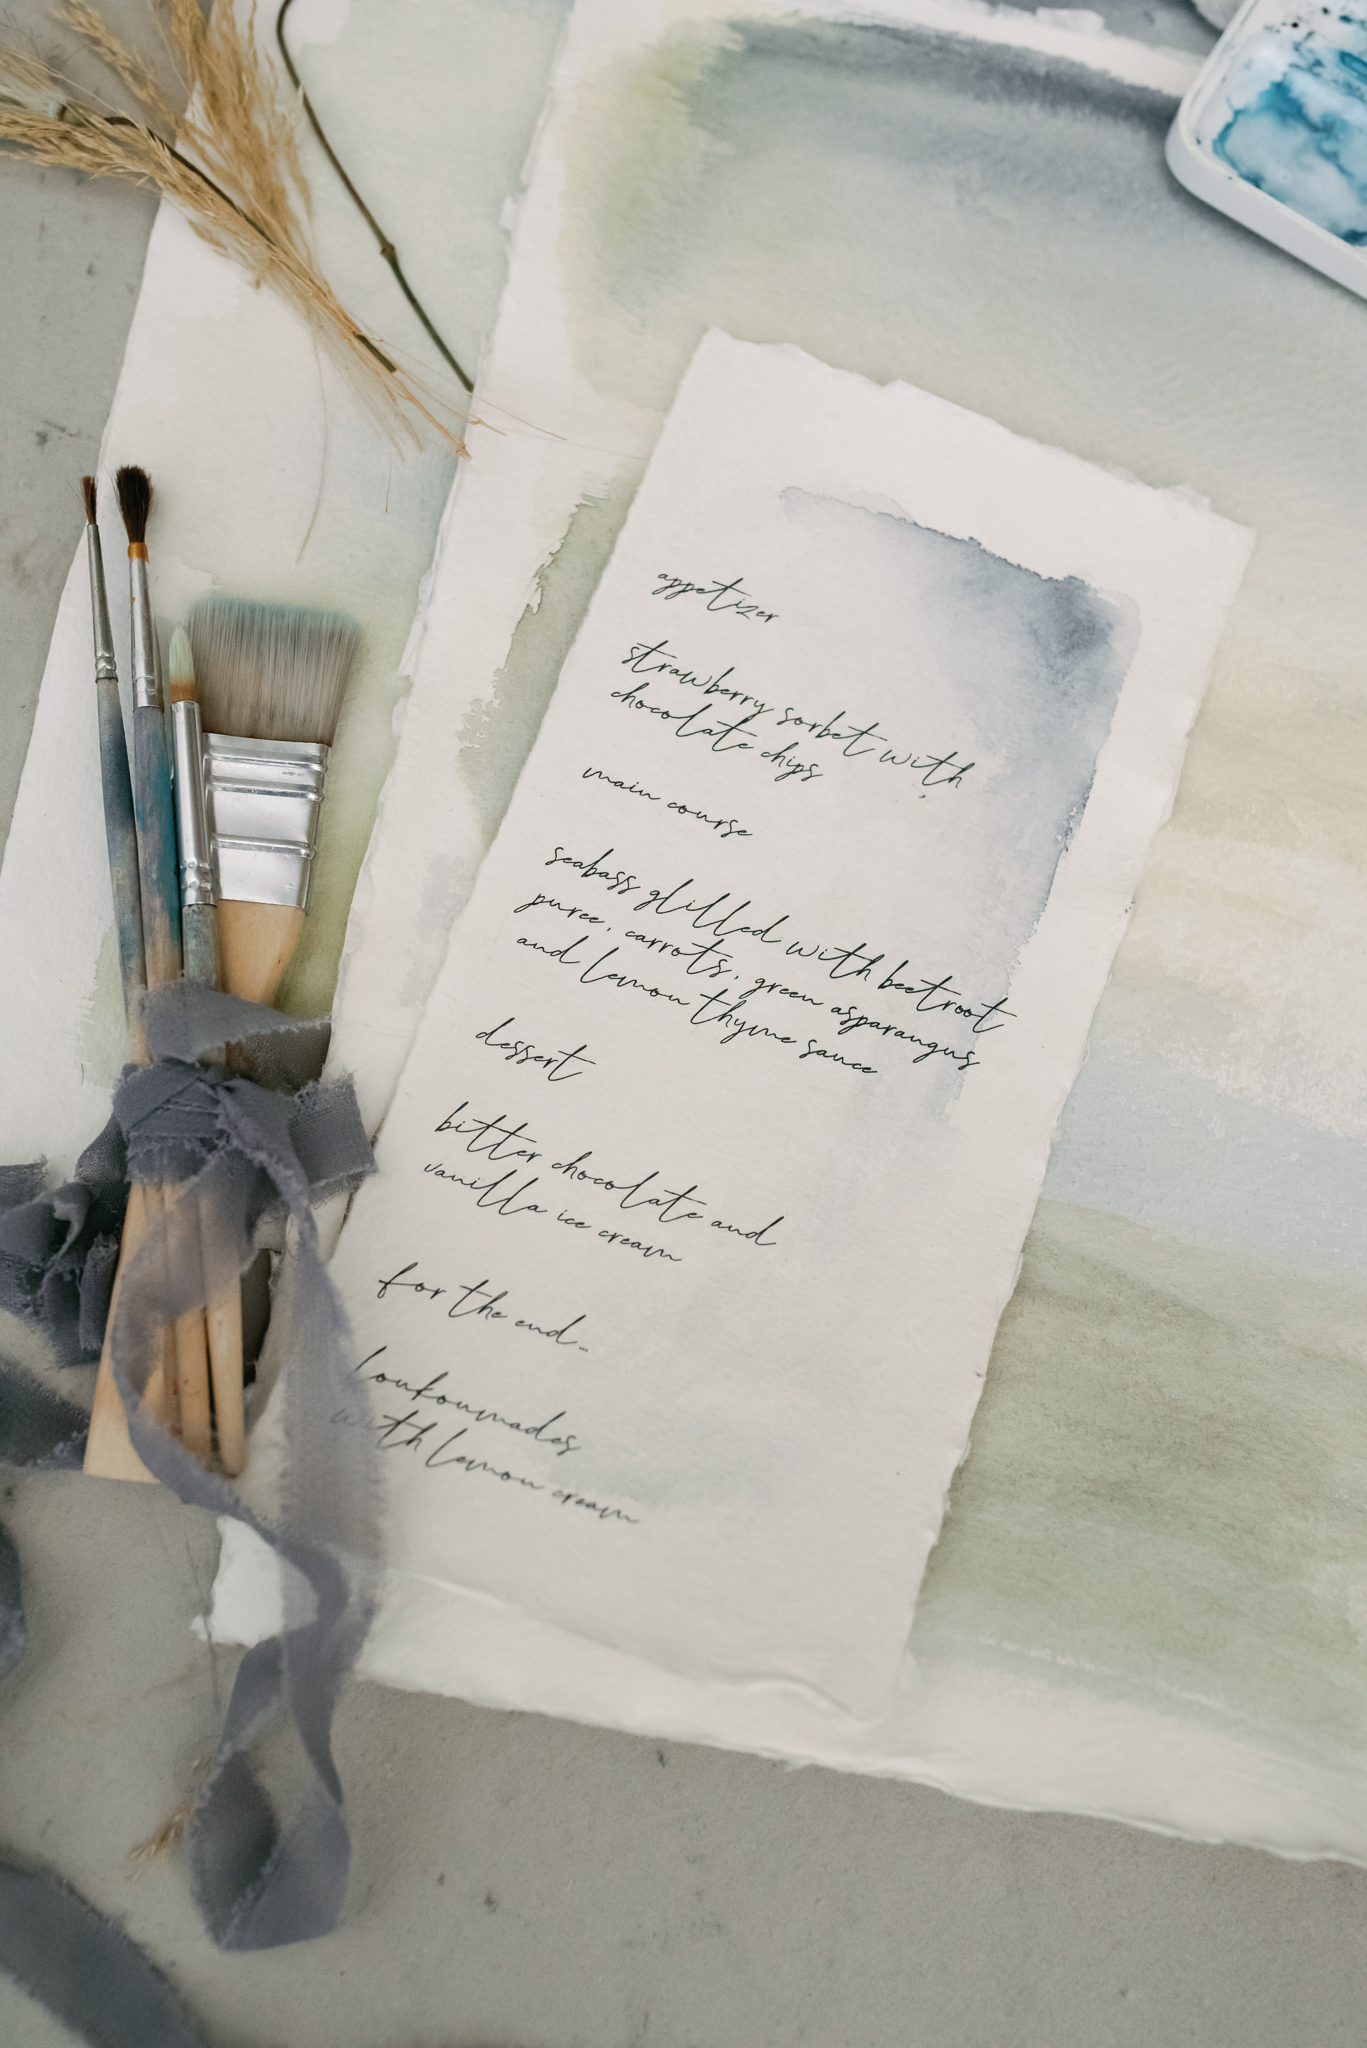 appetizer
strawberry sorbet with
chocolate chips
main course
seabass glilled with beetroot
puree, carrots, green asparaugus
and lemon thyme sauce
dessert
bitter chocolate and
vanilla ice cream
for the end...
loukoumades
with lemon cream